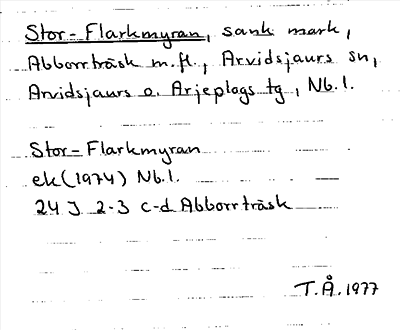 Stor-Flarkmyran, sank mark,
Abborrträsk m.fl., Arvidsjaurs sn,
Arvidsjaurs o. Arjeplogs tg, Nb.l.
Stor-Flarkmyran
ek(1974) Nb.l.
24 J 2-3 c-d Abborrträsk
T.Å. 1977